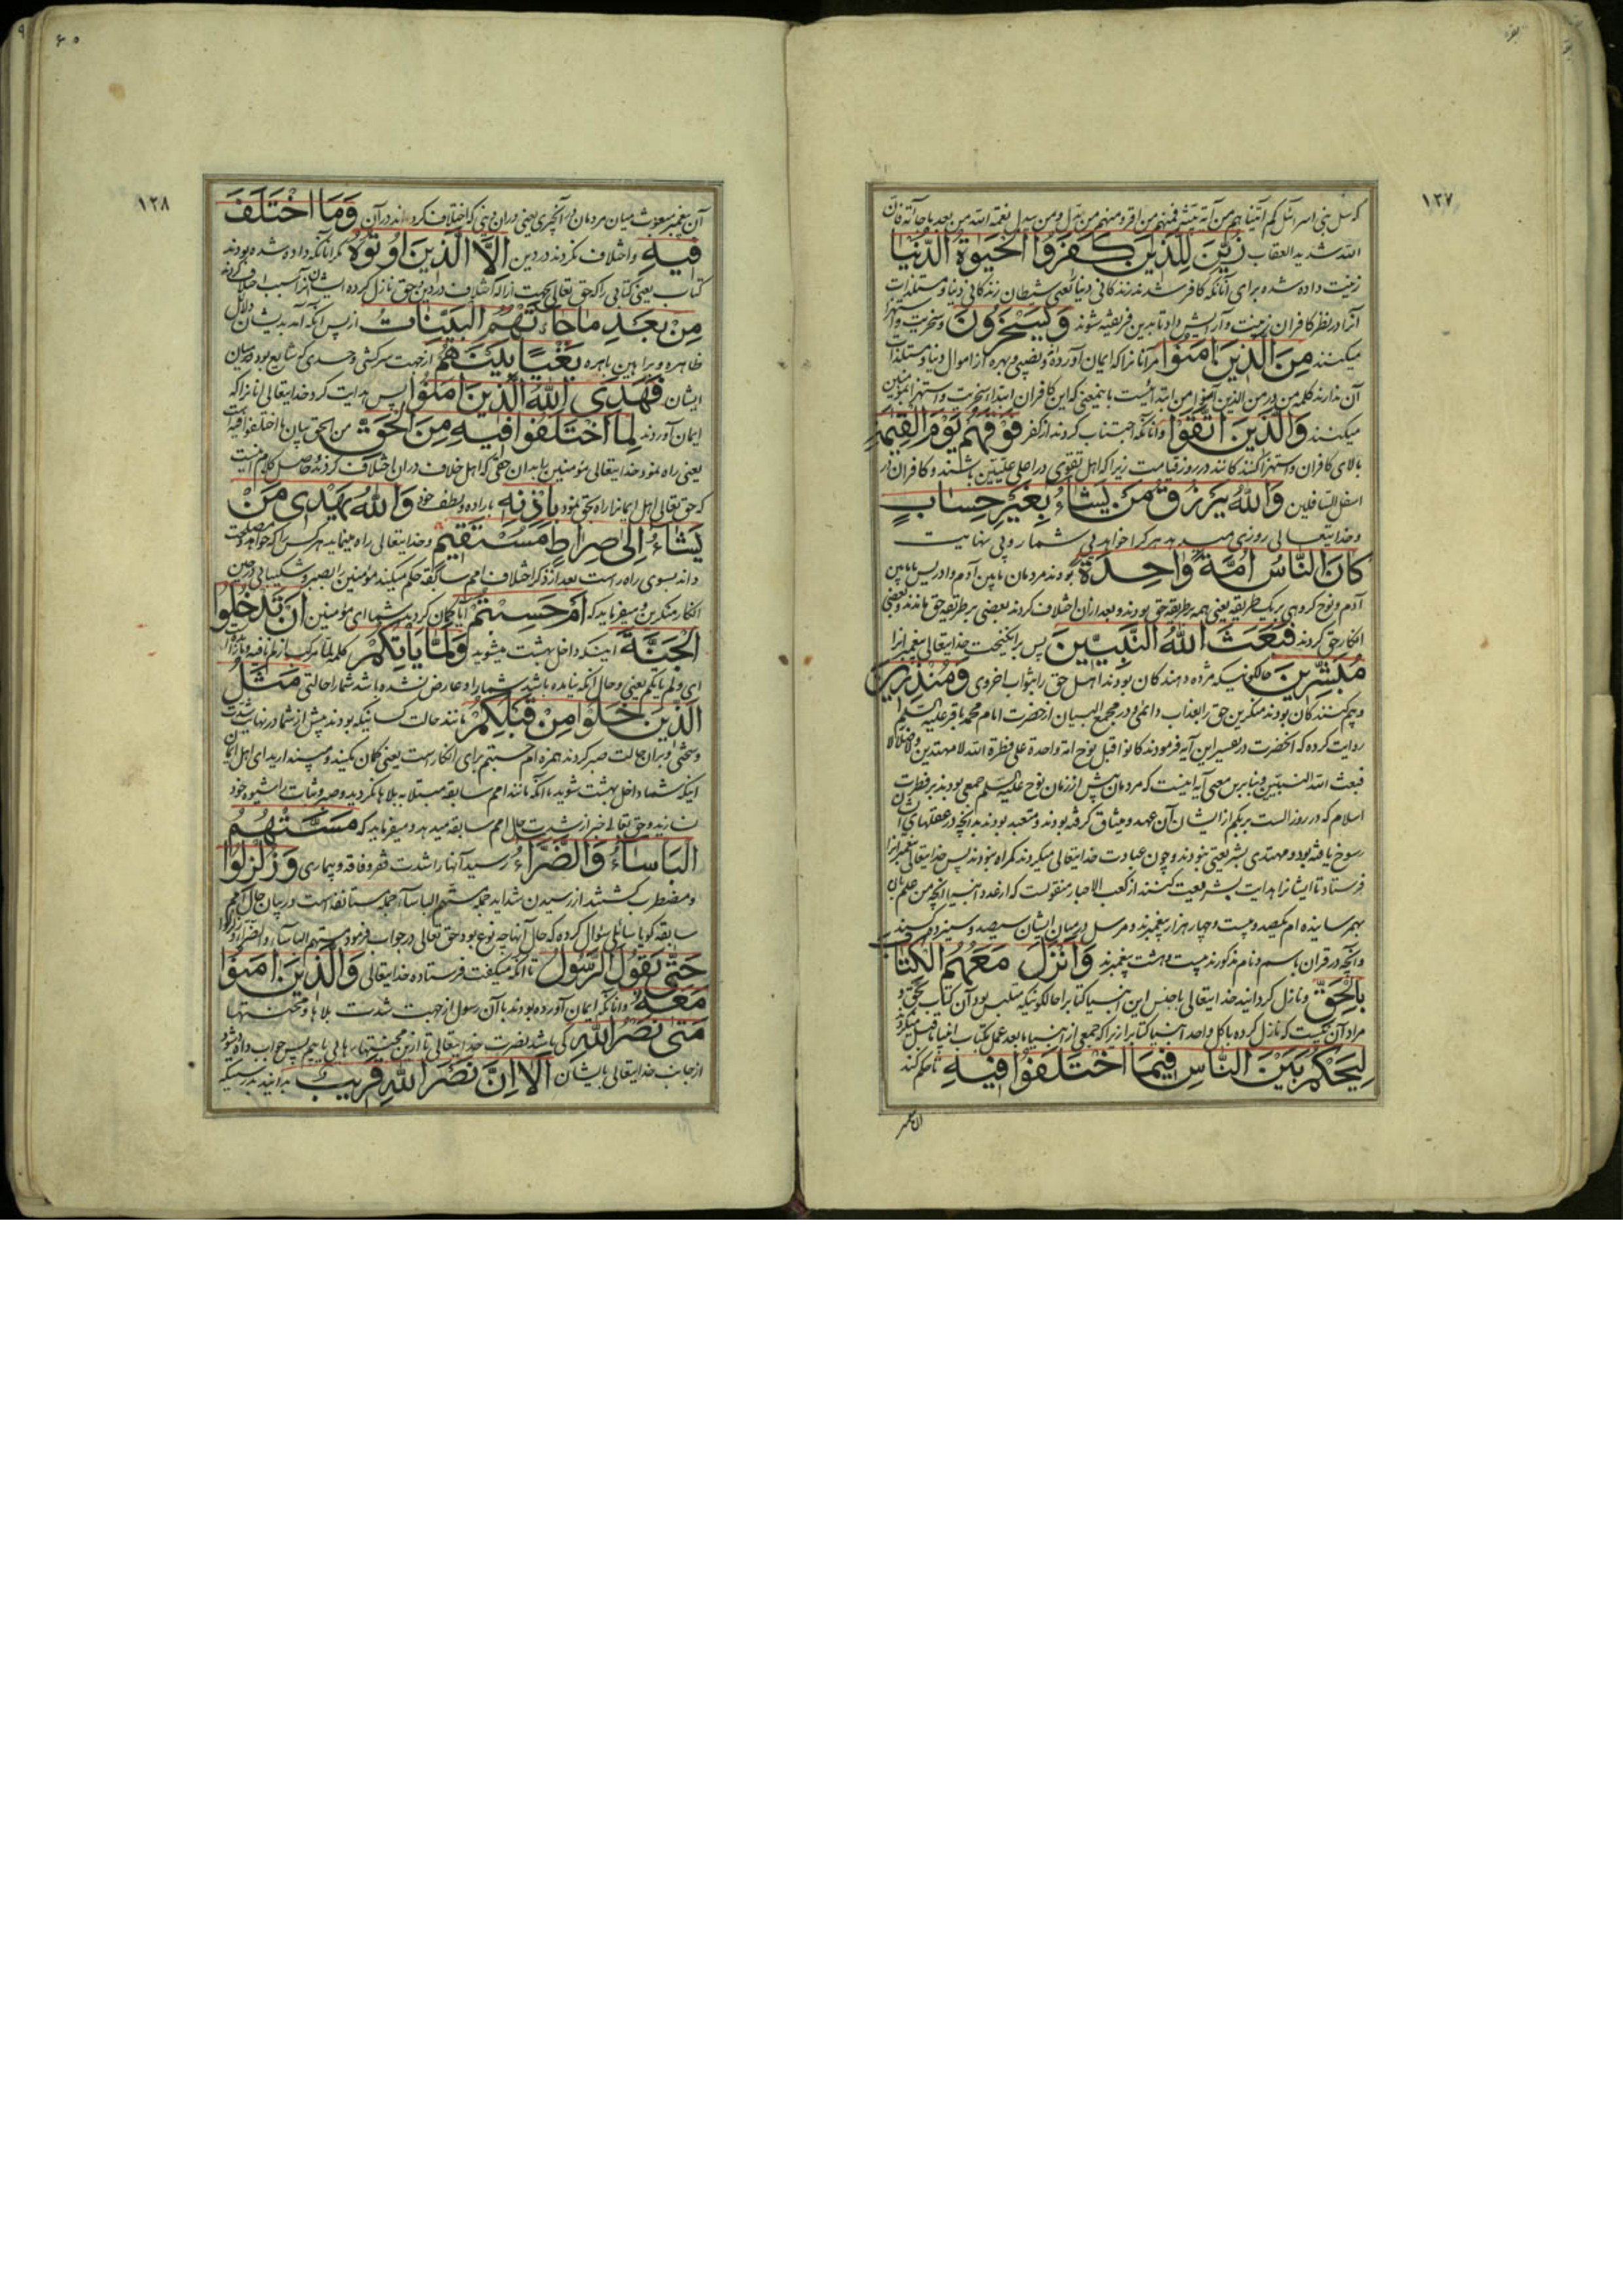 ۱۲۷
کە سل بنی اسرائیل کم آتینا هم من آیة بینة فمنهم من اقر ومنهم من بدل ومن یبدل نعمة الله من بعد ما جائته فان
الله شدید العقاب زُيِّنَ لِلَّذينَ كَفَرُوا الْحَيوةُ الدُّنْيا
زینت داده شده برای آنانکه کافر شدند زندکانی دنیا یعنی شیطان زندکانی دنیا و مستلذات
آنرا در نظر کافران زینت و آرایش داد تا بدین فریفته شوند وَيَسْخَرُونَ وسخریت و استهزا
میکنند مِنَ الَّذينَ امَنُوا مر آنانرا که ایمان آورده و نصیبی و بهره از اموال دنیا و مستلذات
آن ندارند کلمه من در من الذین آمنوا من ابتدائیست باینمعنی که این کافران ابتدا سخریت و استهزا بمؤمنین
میکنند وَالَّذينَ اتَّقَوْا وآنانکه اجتناب کردند از کفر فَوْقَهُمْ يَوْمَ الْقِيمَةِ
بالای کافران و استهزا کنندکانند در روز قیامت زیرا که اهل تقوی در اعلی علیین باشند و کافران در
اسفل السافلین وَاللهُ يَرْزُقُ مَنْ يَشاءُ بِغَيْرِ حِسابٍ
وخدایتعالی روزی میدهد هر کرا خواهد بی شمار و بی نهایت
كانَ النَّاسُ اُمَّةً واحِدَةً بودند مردمان مابین آدم و ادریس یا مابین
آدم و نوح کروهی بر یک طریقه یعنی همه بر طریقه حق بودند و بعد از آن اختلاف کردند بعضی بر طریقه حق ماندند و بعضی
انکار حق کردند فَبَعَثَ اللهُ النَّبِيّينَ پس برانکیخت خدایتعالی پیغمبرانرا
مُبَشِّرينَ حالکونیکه مژده دهندکان بودند اهل حق را بثواب اخروی وَمُنْذِرينَ
وبیم کنندکان بودند منکرین حق را بعذاب دائمی و در مجمع البیان از حضرت امام محمد باقر علیه السلم
روایت کرده که آنحضرت در تفسیر این آیه فرمودند کانوا قبل نوح امة واحدة علی فطرة الله لا مهتدین ولا ضلالا
فبعث الله النبیین و بنابرین معنی آیه اینست که مردمان پیش از زمان نوح علیه السلم جمعی بودند بر فطرت
اسلام که در روز الست بربکم از ایشان آن عهد و میثاق کرفته بودند و متعبد بودند بدانچه در عقلهای ایشان
رسوخ یافته بود و مهتدی بشریعتی نبودند و چون عبادت خدایتعالی میکردند کمراه نبودند پس خدایتعالی پیغمبرانرا
فرستاد تا ایشانرا هدایت بشریعت کنند از کعب الاحبار منقولست که از عدد انبیا آنچه من علم بآن
بهم رسانیده ام یکصد و بیست و چهار هزار پیغمبرند و مرسل در میان ایشان سیصد و سیزده کسند
وآنچه در قران باسم و نام مذکورند بیست و هشت پیغمبرند وَاَنْزَلَ مَعَهُمُ الْكِتابَ
بِالْحَقِّ ونازل کردانید خدایتعالی با جنس این انبیا کتابرا حالکونیکه متلبس بود آن کتاب بحق و
مراد آن نیست که نازل کرده با کل واحد انبیا کتابرا زیرا که جمعی از انبیا ما بعد عمل بکتاب انبیا ما قبل میکردند
لِيَحْكُمَ بَيْنَ النَّاسِ فيمَا اخْتَلَفُوا فيهِ تا حکم کند
۱۲۸
آن پیغمبر مبعوث میان مردمان در آنچیزی یعنی در آن دینی که اختلاف کرده اند در آن وَمَا اخْتَلَفَ
فيهِ واختلاف نکردند در دین اِلَّا الَّذينَ اُوتُوهُ مکر آنانکه داده شده بودند
کتاب یعنی کتابی را که حق تعالی بجهت ازاله اختلاف در دین حق نازل کرده
مِنْ بَعْدِ ما جاءَتْهُمُ الْبَيِّناتُ از پس آنکه آمد بدیشان دلائل
ظاهره و براهین باهره بَغْيًا بَيْنَهُمْ از جهت سرکشی و حسدی که شایع بود در میان
ایشان فَهَدَى اللهُ الَّذينَ امَنُوا پس هدایت کرد خدایتعالی آنانرا که
ایمان آوردند لِمَا اخْتَلَفُوا فيهِ مِنَ الْحَقِّ من الحق بیان ما اختلفوا فیه است
یعنی راه نمود خدایتعالی مؤمنین را بدان حقی که اهل خلاف در آن اختلاف کردند و حاصل کلام آنست
که حق تعالی اهل ایمانرا راه بحق نمود بِاِذْنِه باراده و لطف خود وَاللهُ يَهْدى مَنْ
يَشاءُ اِلى صِراطٍ مُسْتَقيمٍ وخدایتعالی راه مینماید هر کس را که خواهد و مصلحت
داند بسوی راه راست بعد از ذکر اختلاف امم سابقه حکم میکند مؤمنین را بصبر و شکیبائی در حین
انکار منکرین و میفرماید که اَمْ حَسِبْتُمْ آیا کمان کردید شما ای مؤمنین اَنْ تَدْخُلُوا
الْجَنَّةَ اینکه داخل بهشت میشوید وَلَمَّا يَأْتِكُمْ کلمه لما مرکب از لم نافیه و ما زائده است
ای ولم یأتکم یعنی و حال آنکه نیامده باشد شما را و عارض نشده باشد شما را حالتی مَثَلُ
الَّذينَ خَلَوْا مِنْ قَبْلِكُمْ مانند حالت کسانیکه بودند پیش از شما در نهایت شدت
وسختی و بر آن حالت صبر کردند همزه ام حسبتم برای انکار است یعنی کمان مکنید و مپندارید ای اهل ایمان
اینکه شما داخل بهشت شوید با آنکه مانند امم سابقه مبتلا به بلاها نکردید و صبر و ثبات را شیوه خود
نسازید و حق تعالی خبر از شدت حال امم سابقه میدهد و میفرماید که مَسَّتْهُمُ
الْبَأْساءُ وَالضَّرَّاءُ رسید آنها را شدت فقر و فاقه و بیماری وَزُلْزِلُوا
ومضطرب کشتند از رسیدن شداید جمله مستهم الباسآء جمله مستانفه است در بیان حال امم
سابقه کویا سائلی سؤال کرده که حال آنها چه نوع بود حق تعالی در جواب فرمود مستهم الباسآء و الضرآء و زلزلوا
حَتّى يَقُولَ الرَّسُولُ تا آنکه میکفت فرستاده خدایتعالی وَالَّذينَ امَنُوا
مَعَهُ وآنانکه ایمان آورده بودند با آن رسول از جهت شدت بلاها و محنتها
مَتى نَصْرُ اللهِ کی باشد نصرت خدایتعالی تا ازین محنتها رهائی یابیم پس جواب داده میشود
از جانب خدایتعالی بایشان اَلا اِنَّ نَصْرَ اللهِ قَريبٌ بدانید بدرستیکه